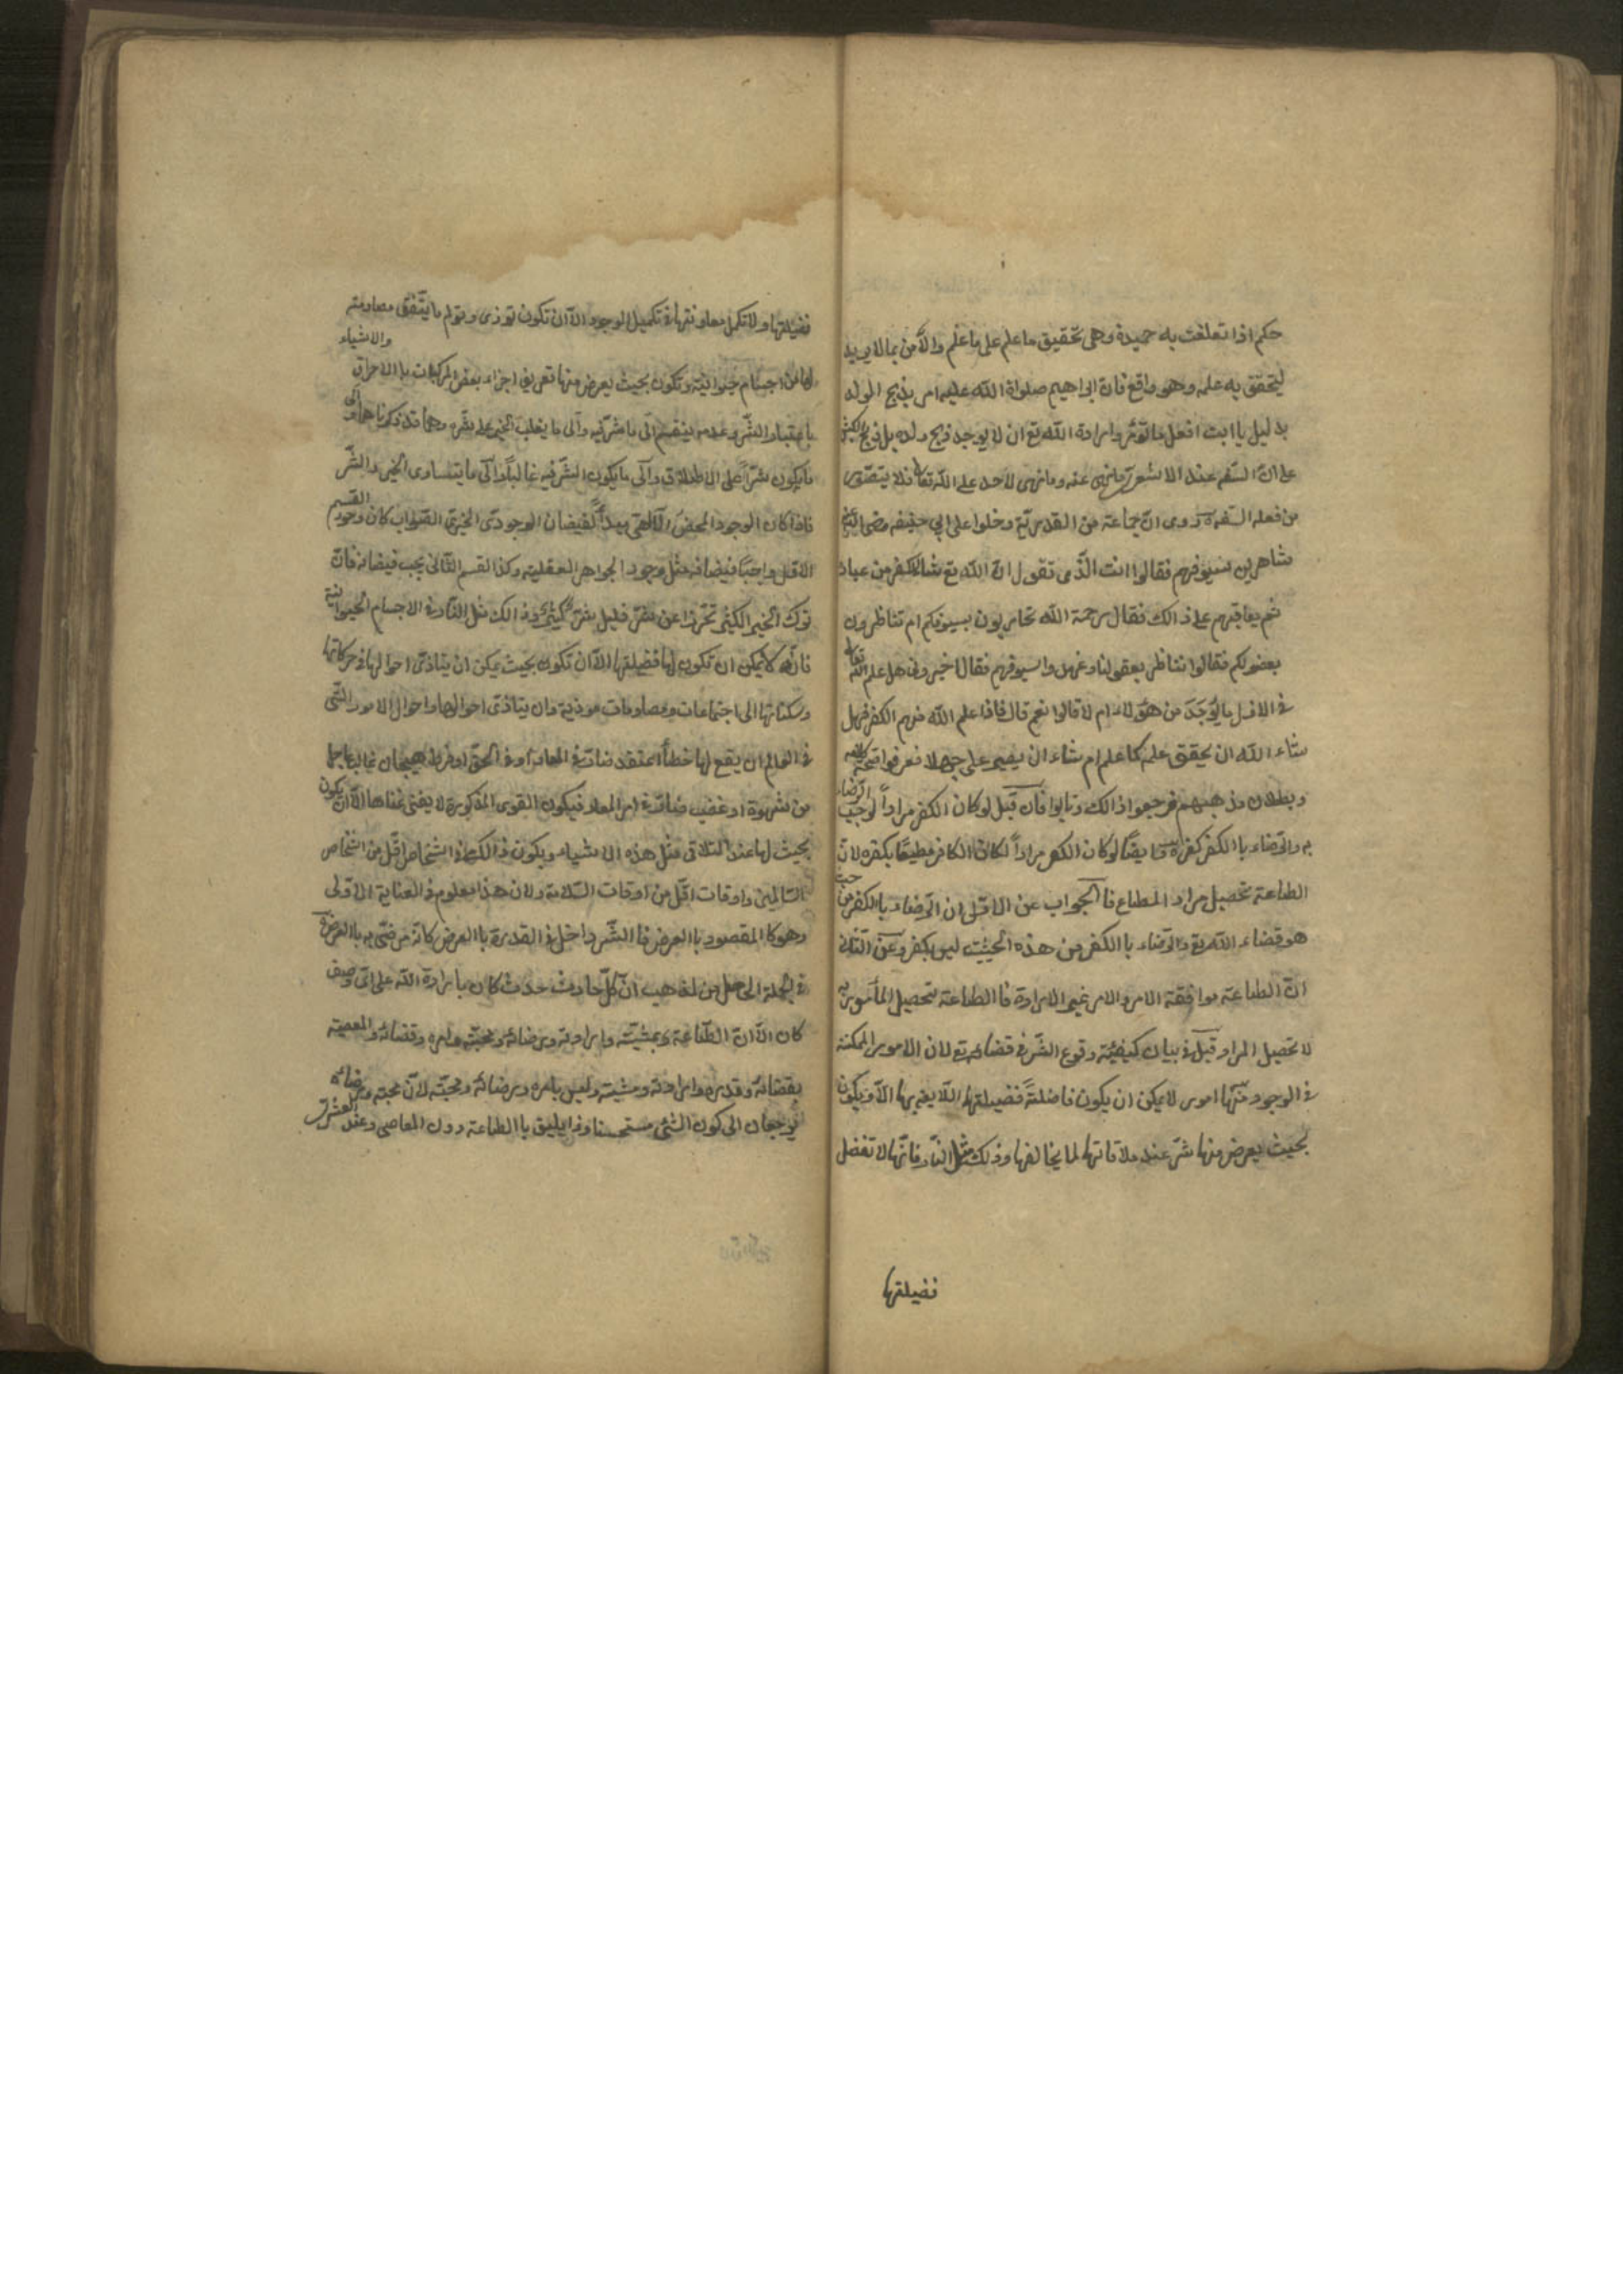 حكم اذا تعلقت به حميدة وهى تحقيق ما علم على ما علم والامر بما لا يريد
ليتحقق به علمه وهو واقع فان ابراهيم صلواة الله عليه امر بذبح الولد
بدليل يا ابت افعل ما تؤمر وارادة الله تع ان لا يوجد ذبح ولده بل ذبح الكبش
على ان السفه عند الاشعرى ما نهى عنه وما نهى لاحد على الله تعا فلا يتصور
من فعله السفه روى ان جماعة من القدرية دخلوا على ابي حنيفه رضى الله عنه
شاهرين سيوفهم فقالوا انت الذى تقول ان الله تع شاء الكفر من عباده
ثم يعاقبهم على ذالك فقال رحمة الله تحاربون بسيوفكم ام تناظرون
بعقولكم فقالوا نناظر بعقولنا وغمدوا سيوفهم فقال اخبرونى هل علم الله تعا
فى الازل ما يوجد من هؤلاء ام لا قالوا نعم قال فاذا علم الله منهم الكفر فهل
شاء الله ان يحقق علمه كما علم ام شاء ان يصير على جهلا فعرفوا صحة كلامه
وبطلان مذهبهم فرجعوا ذالك وتابوا فان قيل لو كان الكفر مراداً لوجب الرضاء
به والرضاء باالكفر كفر وايضا لو كان الكفر مراداً لكان الكافر مطيعًا بكفره لان
الطاعة تحصيل مراد المطاع فالجواب عن الاول ان الرضاء باالكفر من حيث
هو قضاء الله تع والرضاء باالكفر من هذه الحيثيت ليس بكفر وعن الثانى
ان الطاعة موافقة الامر والامر غير الارادة فا الطاعة تحصيل المأمور به
لا تحصيل المراد قيل فى بيان كيفية وقوع الشر فى قضائه تع لان الامور الممكنة
فى الوجود منها امور لا يمكن ان يكون فاضلةً فضيلتها اللايق بها الا ويكون
بحيث يعرض منها شر عند ملاقاتها لما يخالفها وذلك مثل النار فانها لا تفضل
فضيلتها
فضيلتها ولا تكمل معاونتها فى تكميل الوجود الا ان تكون توذى وتولم ما يتفق مصادمته
لها من اجسام حيوانية وتكون بحيث يعرض منها تفريق اجزاء بعض المركبات باالاحراق والاشياء
باعتبار الشر وعدمه ينقسم الى ما شر فيه والى ما يغلب الخير على شره وهما قد ذكرناهما والى
ما يكون شراً على الاطلاق والى ما يكون الشر فيه غالباً والى ما يتساوى الخير والشر
فاذا كان الوجود المحض الآلهى مبدأ لفيضان الوجود الخيرى الصواب كان وجود القسم
الاول واجبًا فيضانه مثل وجود الجواهر العقلية وكذا القسم الثانى يجب فيضانه فان
ترك الخير الكثير تحرزا عن شر قليل شر كثير وذالك مثل النار فى الاجسام الحيوانية
فانه لا يمكن ان تكون لها فضيلتها الا ان تكون بحيث يمكن ان يتاذى احوالها فى حركاتها
وسكناتها الى اجتماعات ومصادمات موذية وان يتاذى احوالها واحوال الامور التى
فى العالم ان يقع لها خطأ اعتقد ضار فى المعاد او فى الحق او فرط هيجان غالب عاجل
من شهوة او غضب ضار فى امر المعاد فيكون القوى المذكورة لا يغنى غناها الا ان يكون
بحيث لها عند التلاقى مثل هذه الاشياء ويكون ذالك فى اشخاص اقل من اشخاص
السالمين واوقات اقل من اوقات السلامة ولان هذا معلوم فى العناية الاولى
وهو كا المقصود باالعرض فا الشر داخل فى القدرة باالعرض كانه مرضى به باالعرض
فى الجملة الحاصل من المذهب ان كل حادث حدث كان بارادة الله على اى وصف
كان الا ان الطاعة بمشيته وارادته ورضائه ومحبته وامره وقضائه والمعصية
بقضائه وقدره وارادته ومشيته وليس بامره ورضائه ومحبته لان محبته ورضائه
يرجعان الى كون الشئ مستحسنا وذا يليق باالطاعة دون المعاصى وعند